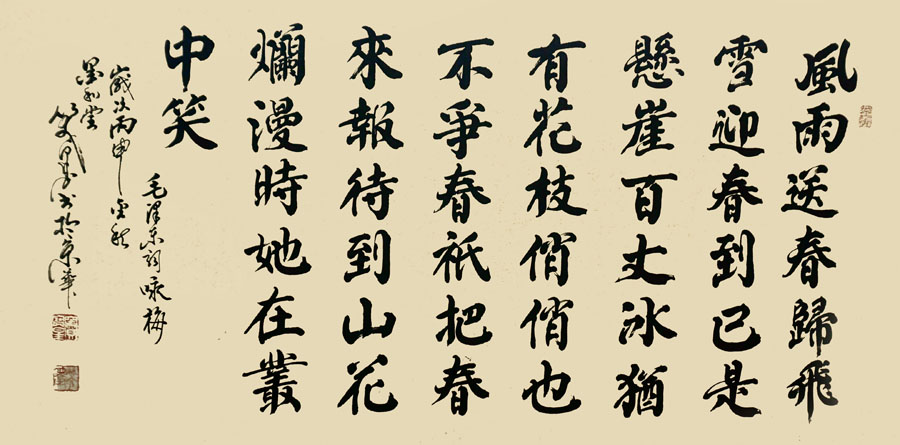 風雨送春歸飛
雪迎春到已是
懸崖百丈冰猶
有花枝俏俏也
不爭春祇把春
來報待到山花
爛漫時她在叢
中笑
毛澤東詞咏梅
歲次丙申金秋
書於京華